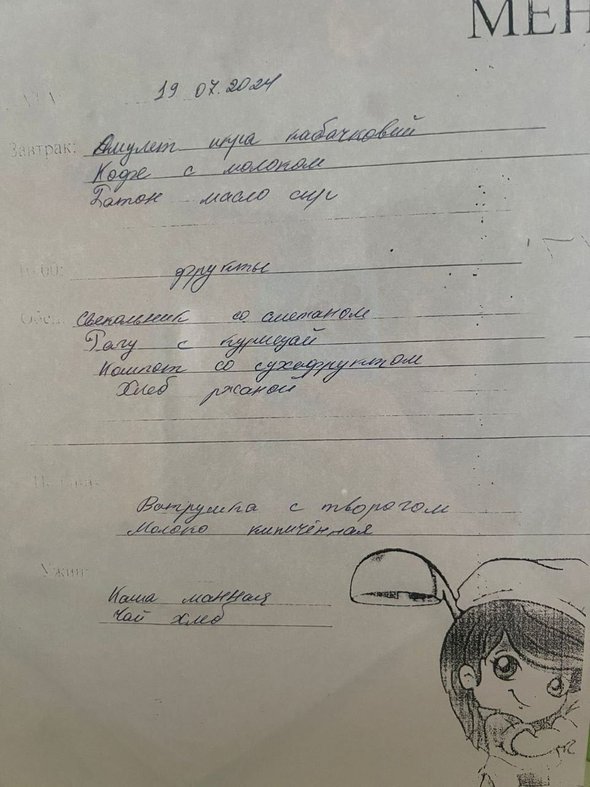 МЕН
19 07.2024
Завтрак: Омулет икра кабачковий
Кофе с молоком
Батон масло сыр
10:00: фрукты
Обед: свекольник со сметаном
Рагу с курицай
Компот со сухофруктом
Хлеб ржаной
Ватрушка с творогом
Молоко кипичённая
Ужин:
Каша манная
Чай хлеб